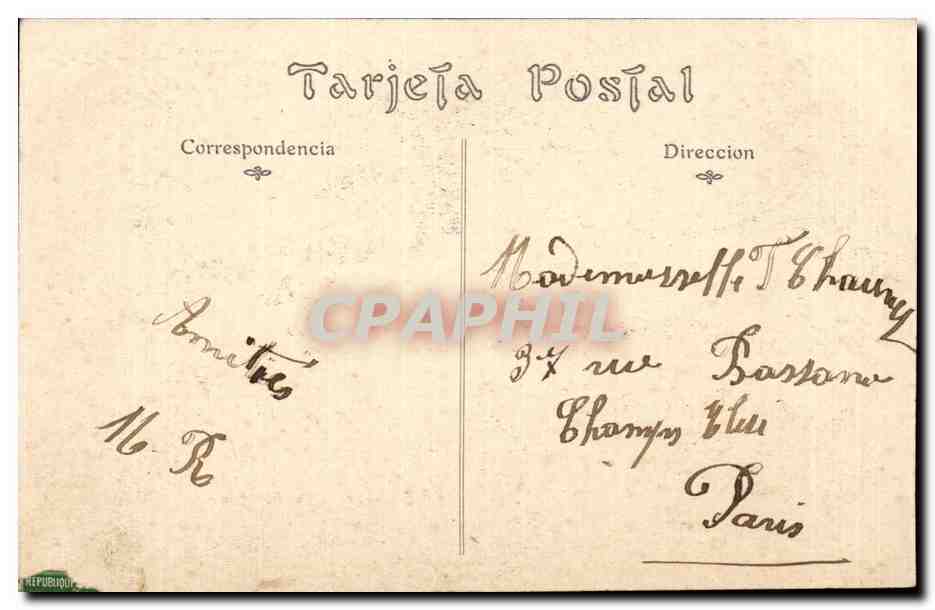 Tarjeta Postal
Correspondencia
Direccion
Amitiés
M. R
Mademoiselle T
37 rue Bassano
Champs Elisé
Paris
CPAPHIL
REPUBLIQUE